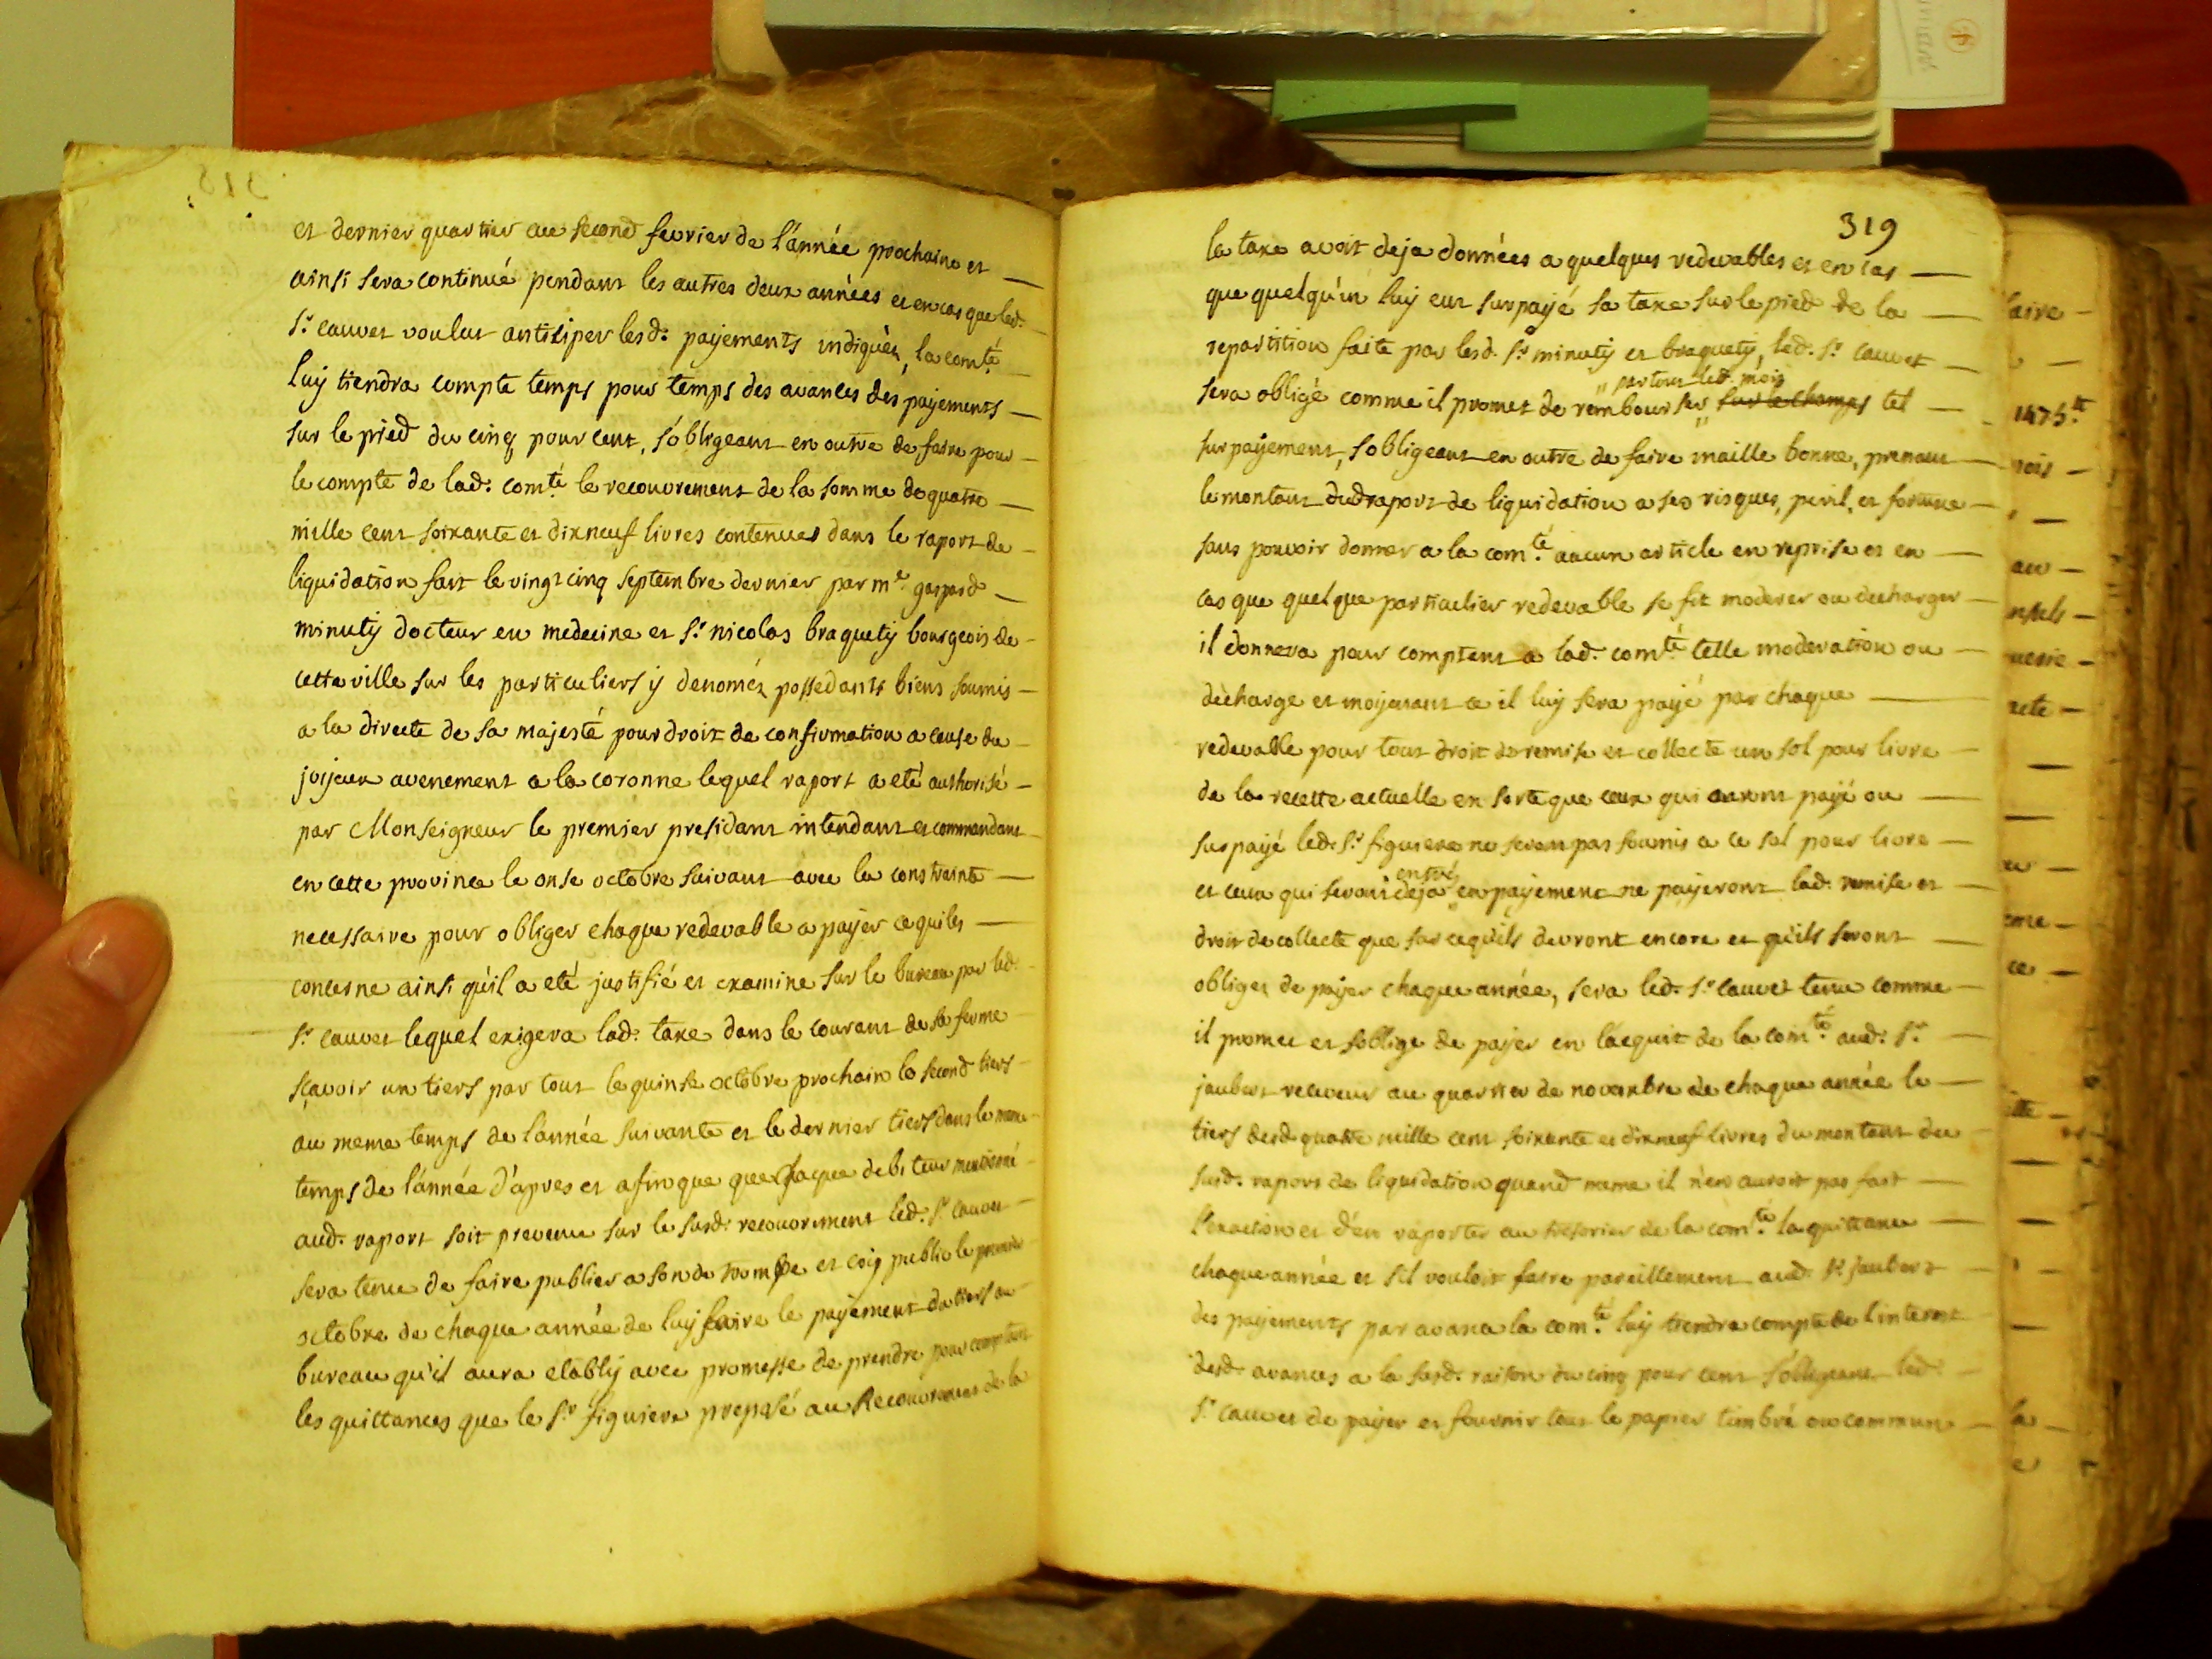 et dernier quartier au second fevrier de l'année prochaine et
ainsi sera continué pendant les autres deux années et en cas que led.
Sr. cauvet voulut antisiper lesd: payements indiquéz, la comté
luy tiendra compte temps pour temps des avances des payements
sur le pied du cinq pour cent, s'obligeant en outre de faire pour
le compte de lad: comté le recouvrement de la somme de quatre
mille cent soixante et dixneuf livres contenues dans le raport de
liquidation fait le vingt cinq septembre dernier par me gaspard
minuty docteur en medecine et Sr. nicolas braquety bourgeois de
cette ville sur les particuliers y denoméz possedants biens soumis
a la directe de sa majesté pour droit de confirmation a cause du
joyeux avenement a la coronne lequel raport a eté authorisé
par Monseigneur le premier presidant intendant et commandant
en cette province le onse octobre suivant avec la constrainte
necessaire pour obliger chaque redevable a payer ce qui les
concerne ainsi qu'il a eté justifié et examine sur le bureau par led.
Sr. cauvet lequel exigera lad: taxe dans le courant de sa ferme
sçavoir un tiers par tout le quinse octobre prochain le second tiers
au meme temps de l'année suivante et le dernier tiers dans le meme
temps de l'année d'apres et afin que debiteur mentioné
aud. raport soit prevenu sur le susd. recouvrement led. Sr. cauvet
sera tenu de faire publier a son de trompe et cry public le premier
octobre de chaque année de luy faire le payement du tiers au
bureau qu'il aura etably avec promesse de prendre pour comptant
les quittances que le Sr. figuiere preposé au Recouvrement de la
319
la taxe avoit deja données a quelques redevables et en cas
que quelqu'un luy eut surpayé sa taxe sur le pied de la
repartition faite par lesd. Srs minuty et braquety, led. Sr. cauvet
par tout led. mois
sera obligé comme il promet de rembourser sur le champs tel
surpayement, s'obligeant en outre de faire maille bonne, prenant
le montant dud raport de liquidation a ses risques, peril, et fortune
sans pouvoir donner a la comté aucun article en reprise et en
cas que quelque particulier redevable se fit moderer ou decharger
il donnera pour comptant a lad. comté telle moderation ou
decharge et moyenant ce il luy sera payé par chaque
redevable pour tout droit de remise et collecte un sol pour livre
de la recette actuelle en sorte que ceux qui auront payé ou
surpayé led. Sr. figuiere ne seront pas soumis a ce sol pour livre
entrés
et ceux qui seront deja en payement ne payeront lad. remise et
droit de collecte que sur ce qu'ils devront encore et qu'ils seront
obliges de payer chaque année, sera led. Sr. cauvet tenu comme
il promet et s'oblige de payer en l'acquit de la comté aud: Sr.
jaubert receveur au quartier de novembre de chaque année le
tiers desd. quatre mille cent soixante et dixneuf livres du montant du
susd. raport de liquidation quand meme il n'en auroit pas fait
l'exaction et d'en raporter au tresorier de la comté la quittance
chaque année et s'il vouloit faire pareillement aud. Sr. jaubert
des payements par avance la comté luy tiendra compte de l'interet
desd. avances a la susd. raison du cinq pour cent s'obligeant led.
Sr. cauvet de payer et fournir tout le papier timbré ou commun